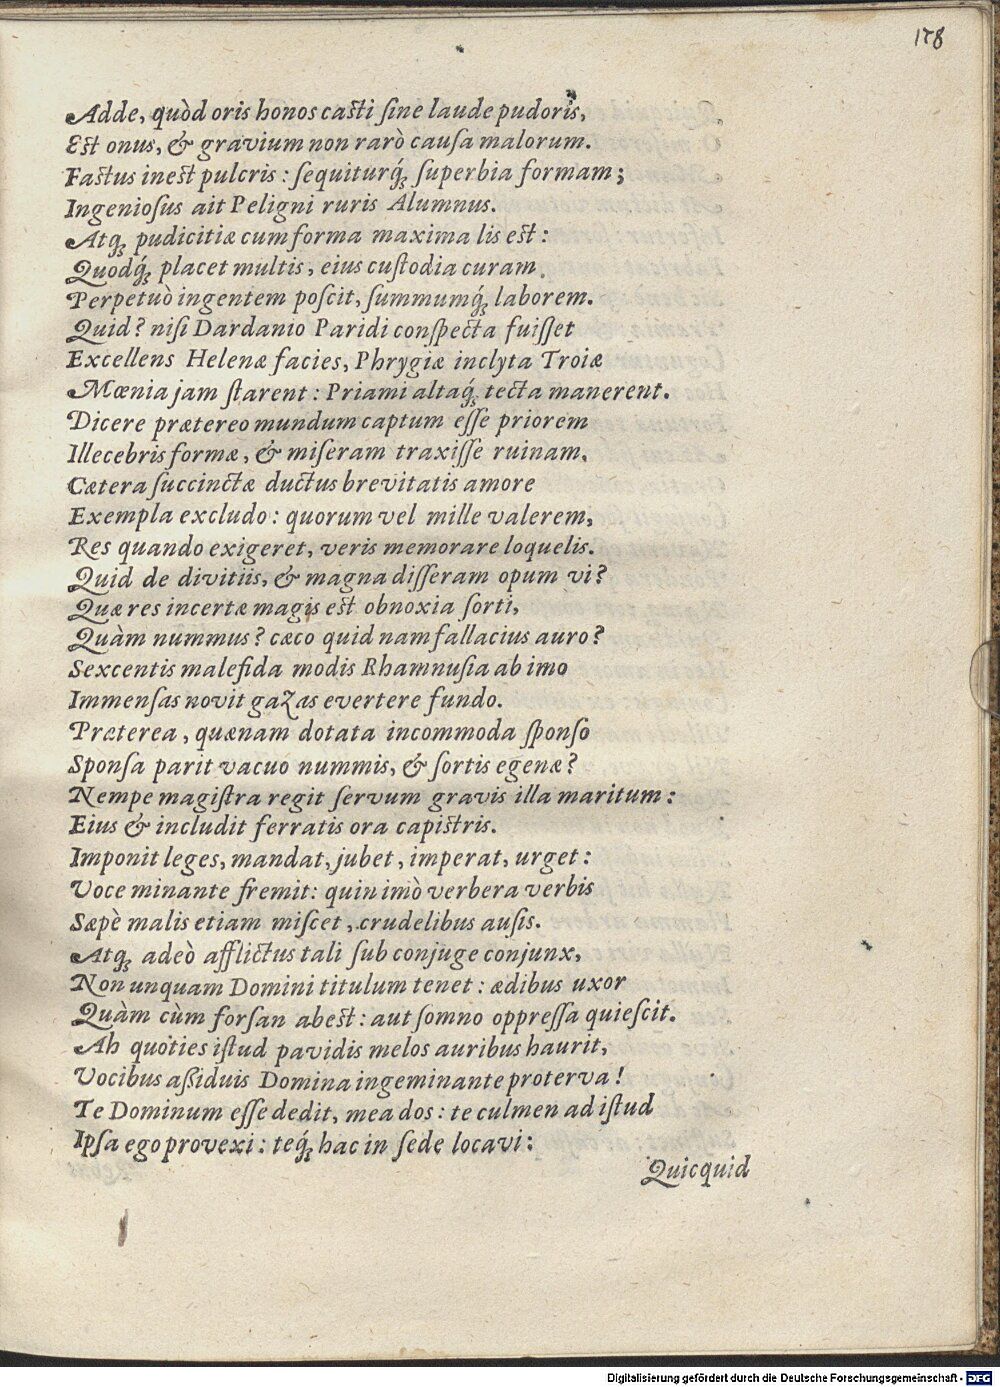 178
Adde, quòd oris honos casti sine laude pudoris,
Est onus, & gravium non rarò causa malorum.
Fastus inest pulcris: sequiturq́; superbia formam;
Ingeniosus ait Peligni ruris Alumnus.
Atq; pudicitiæ cum forma maxima lis est:
Quodq́; placet multis, eius custodia curam
Perpetuò ingentem poscit, summumq́; laborem.
Quid? nisi Dardanio Paridi conspecta fuisset
Excellens Helenæ facies, Phrygiæ inclyta Troiæ
Mœnia jam starent: Priami altaq́; tecta manerent.
Dicere prætereo mundum captum esse priorem
Illecebris formæ, & miseram traxisse ruinam.
Cætera succinctæ ductus brevitatis amore
Exempla excludo: quorum vel mille valerem,
Res quando exigeret, veris memorare loquelis.
Quid de divitiis, & magna disseram opum vi?
Quæ res incertæ magis est obnoxia sorti,
Quàm nummus? cæco quid nam fallacius auro?
Sexcentis malefida modis Rhamnusia ab imo
Immensas novit gazas evertere fundo.
Præterea, quænam dotata incommoda sponso
Sponsa parit vacuo nummis, & sortis egenæ?
Nempe magistra regit servum gravis illa maritum:
Eius & includit ferratis ora capistris.
Imponit leges, mandat, jubet, imperat, urget:
Voce minante fremit: quin imò verbera verbis
Sæpè malis etiam miscet, crudelibus ausis.
Atq; adeò afflictus tali sub conjuge conjunx,
Non unquam Domini titulum tenet: ædibus uxor
Quàm cùm forsan abest: aut somno oppressa quiescit.
Ah quoties istud pavidis melos auribus haurit,
Vocibus aßiduis Domina ingeminante proterva!
Te Dominum esse dedit, mea dos: te culmen ad istud
Ipsa ego provexi: teq́; hac in sede locavi:
Quicquid
Digitalisierung gefördert durch die Deutsche Forschungsgemeinschaft - DFG